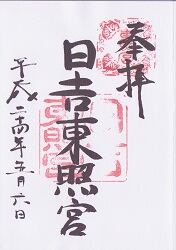 奉拝
日吉東照宮
平成二十四年五月六日